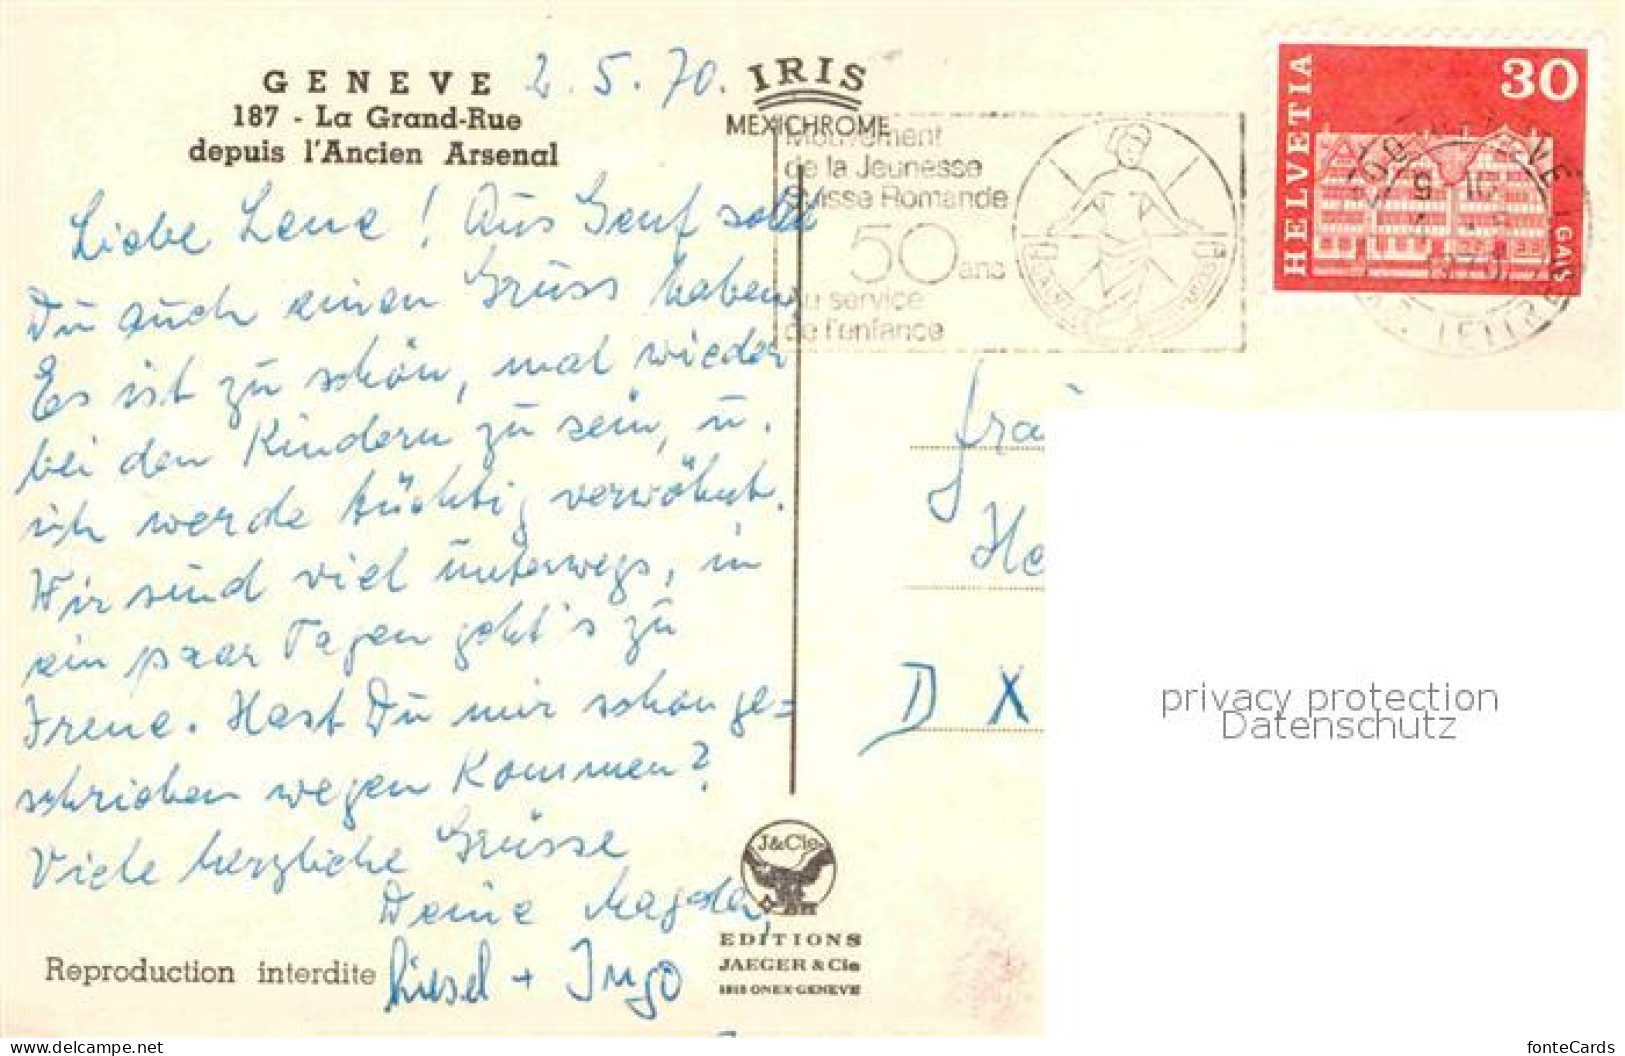 GENEVE
187 - La Grand-Rue
depuis l'Ancien Arsenal
2. 5. 70.
IRIS
MEXICHROME
Mouvement
de la Jeunesse
Suisse Romande
50 ans
au service
de l'enfance
HELVETIA
30
Liebe Lene! Aus Genf sollst
Du auch einen Gruss haben,
Es ist zu schön, mal wieder
bei den Kindern zu sein, u.
ich werde tüchtig verwöhnt.
Wir sind viel unterwegs, in
ein paar Tagen geht's zu
Irene. Hast Du mir schon ge=
schrieben wegen Kommen?
Viele herzliche Grüsse
Deine Magda,
Liesel + Ingo
Reproduction interdite
J&Cie
EDITIONS
JAEGER & Cie
1213 ONEX-GENEVE
D X
privacy protection
Datenschutz
www.delcampe.net
fonteCards